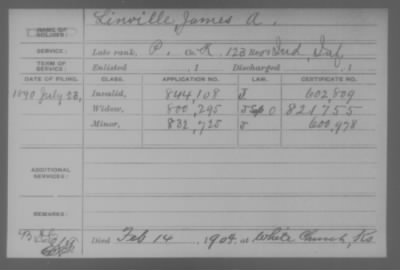 NAME OF SOLDIER: Linville James A.
SERVICE: Late rank, P. Co. K, 123 Reg't Ind, Inf.
TERM OF SERVICE: Enlisted , 1 Discharged , 1
DATE OF FILING. CLASS. APPLICATION NO. LAW. CERTIFICATE NO.
1890 July 23, Invalid, 844,108 J 602,809
Widow, 800,295 J 821755
Minor, 832,725 J 600,978
ADDITIONAL SERVICES:
REMARKS:
Died Feb 14 1904 at White Church, Ks